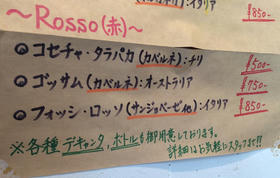 イタリア ¥850-
~Rosso(赤)~
◎コセチャ・タラパカ(カベルネ):チリ ¥500-
◎ゴッサム(カベルネ):オーストラリア ¥750-
◎フォッシ・ロッソ(サンジョベーゼ他):イタリア ¥850-
※各種デキャンタ、ボトルも御用意しております。
詳細はお気軽にスタッフまで!!